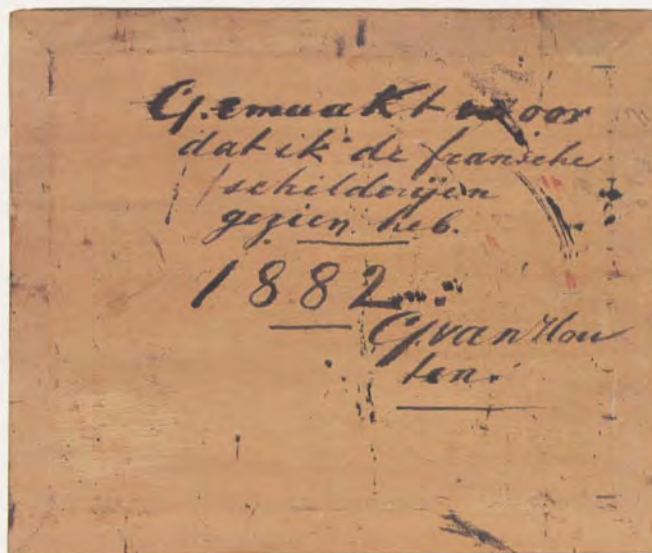 Gemaakt voor
dat ik de fransche
schilderijen
gezien heb.
1882
G. van Hou
ten.